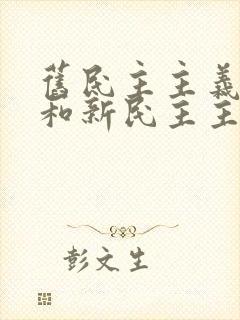 舊民主主義
和新民主主
彭文生